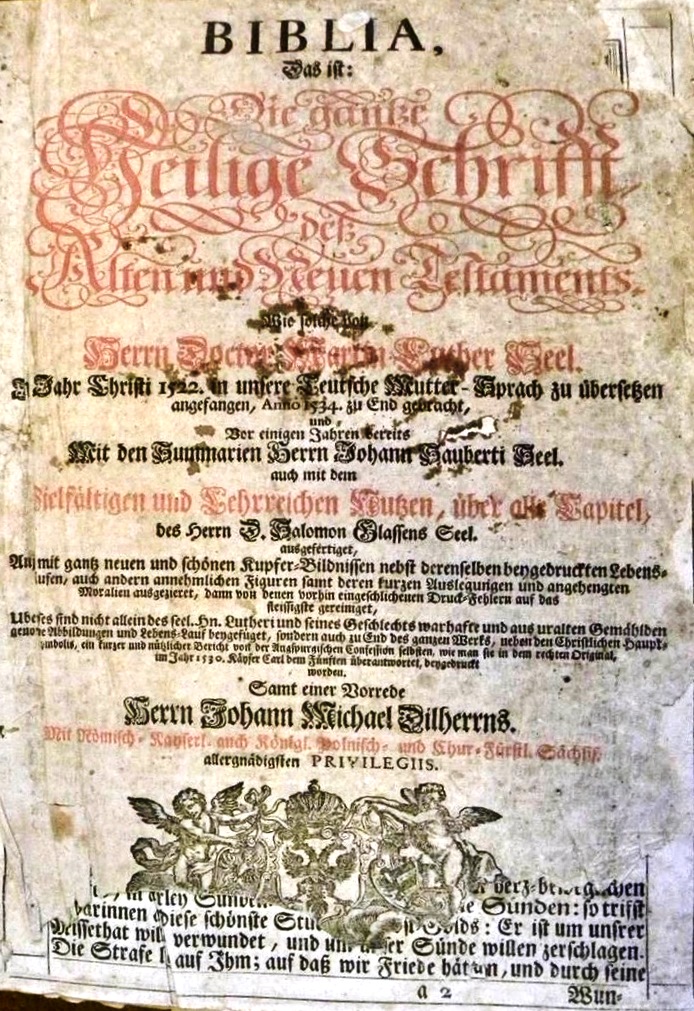 BIBLIA,
Das ist:
Die gantze
Heilige Schrifft
deß
Alten und Neuen Testaments.
Wie solche von
Herrn Doctor Martin Luther Seel.
Jahr Christi 1522. in unsere Teutsche Mutter-Sprach zu übersetzen
angefangen, Anno 1534. zu End gebracht,
und
Vor einigen Jahren bereits
Mit den Summarien Herrn Johann Sauberti Seel.
auch mit dem
Vielfältigen und Lehrreichen Nutzen, über alle Capitel,
des Herrn D. Salomon Glassens Seel.
ausgefertiget,
mit gantz neuen und schönen Kupfer-Bildnissen nebst derenselben beygedruckten Lebens-
auch andern annehmlichen Figuren samt deren kurzen Auslegungen und angehengten
Moralien ausgezieret, dann von denen vorhin eingeschlichenen Druck-Fehlern auf das
fleissigste gereiniget,
sind nicht allein des seel. Hn. Lutheri und seines Geschlechts warhafte und aus uralten Gemählden
Abbildungen und Lebens-Lauf beygefüget, sondern auch zu End des ganzen Werks, neben den Christlichen Haupt-
ein kurzer und nützlicher Bericht von der Augspurgischen Confession selbsten, wie man sie in dem rechten Original,
im Jahr 1530. Käyser Carl dem Fünften überantwortet, beygedruckt
worden.
Samt einer Vorrede
Herrn Johann Michael Dilherrns.
Mit Römisch-Kayserl. auch Königl. Polnisch- und Chur-Fürstl. Sächsis.
allergnädigsten PRIVILEGIIS.
Sünden: so trifft
darinnen diese schönste : Er ist um unsrer
Missethat verwundet, und um unser Sünde willen zerschlagen.
Die Strafe auf Ihm; auf daß wir Friede hätten, und durch seine
a 2 Wun-